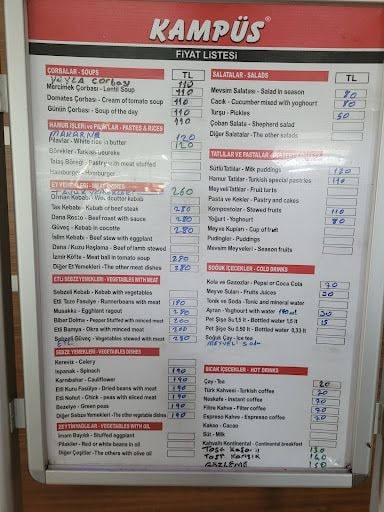 KAMPÜS®
FİYAT LİSTESİ
ÇORBALAR - SOUPS TL
YAYLA Çorbası 110
Mercimek Çorbası - Lentil Soup 110
Domates Çorbası - Cream of tomato soup 110
Günün Çorbası - Soup of the day 110
HAMUR İŞLERİ ve PİLAVLAR - PASTES & RICES
MAKARNA 120
Pilavlar - White rice in butter 120
Börekler - Turkish beureks
Talaş Böreği - Pastry with meat stuffed
Hamburger - Hamburger
ET YEMEKLERİ - MEAT DISHES
260
Orman Kebabı - Woodcutter kebab
Tas Kebabı - Kebab of beef steak 280
Dana Rosto - Beef roast with sauce 280
Güveç - Kebab in cocotte 280
İslim Kebabı - Beef stew with eggplant
Dana / Kuzu Haşlama - Beef of lamb stewed
İzmir Köfte - Meat ball in tomato soup 280
Diğer Et Yemekleri - The other meat dishes 280
ETLİ SEBZE YEMEKLERİ - VEGETABLES WITH MEAT
Sebzeli Kebab - Kebab with vegetables
Etli Taze Fasulye - Runnerbeans with meat
Musakka - Egghlant ragout
Biber Dolma - Pepper Stuffed with minced meat
Etli Bamya - Okra with minced meat
Sebzeli Güveç - Vegetables stewed with meat
SEBZE YEMEKLERİ - VEGETABLES DISHES
Kereviz - Celery
Ispanak - Spinach 190
Karnıbahar - Cauliflower 190
Etli Kuru Fasulye - Dried beans with meat 190
Etli Nohut - Chick - peas with sliced meat 190
Bezelye - Green peas 190
Diğer Sebze Yemekleri - The other vegetable dishes 190
ZEYTİNYAĞLILAR - VEGETABLES WITH OIL
İmam Bayıldı - Stuffed eggplant
Pilakiler - Red or white beans in oil
Diğer Çeşitler - The others with olive oil
SALATALAR - SALADS TL
Mevsim Salatası - Salad in season 80
Cacık - Cucumber mixed with yoghourt 80
Turşu - Pickles 50
Çoban Salata - Shepherd salad
Diğer Salatalar - The other salads
TATLILAR VE PASTALAR
Sütlü Tatlılar - Milk puddings 120
Hamur Tatlılar - Turkish special pastries 110
Meyva Tatlıları - Fruit tarts
Pasta ve Kekler - Pastry and cakes
Kompostolar - Stewed fruits 110
Yoğurt - Yoghourt 80
Meyve Kupları - Cup of fruit
Pudingler - Puddings
Mevsim Meyveleri - Season fruits
SOĞUK İÇECEKLER - COLD DRINKS
Kola ve Gazozlar - Pepsi or Coca Cola 70
Meyve Suları - Fruits Juices 20
Tonik ve Soda - Tonic and mineral water
Ayran - Yoghourt with water 30
Pet Şişe Su 1.5 lt - Bottled water 1,5 lt
Pet Şişe Su 0,50 lt - Bottled water 0,33 lt
Soğuk Çay - Ice tea
SICAK İÇECEKLER - HOT DRINKS
Çay - Tea 20
Türk Kahvesi - Turkish coffee 70
Neskafe - Instant coffee 70
Filtre Kahve - Filter coffee 70
Espreso Kahve - Espresso coffee 70
Kakao - Cacao
Süt - Milk
Kahvaltı Kontinental - Continental breakfast
Tost Kaşarlı 130
Tost Karışık 140
GÖZLEME 130